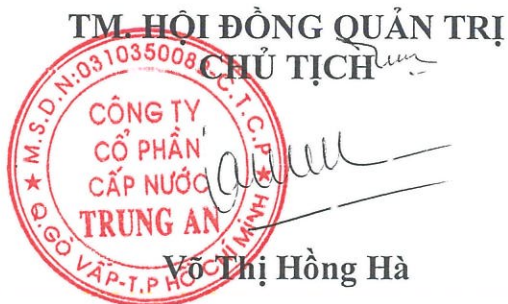 TM. HỘI ĐỒNG QUẢN TRỊ
CHỦ TỊCH
M.S.D.N:031035008
C.T.C.P
CÔNG TY
CỔ PHẦN
CẤP NƯỚC
TRUNG AN
Q.GÒ VẤP-T.P HỒ CHÍ MINH
Võ Thị Hồng Hà